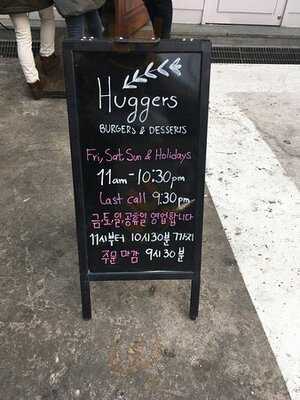 Huggers
BURGERS & DESSERTS
Fri, Sat, Sun & Holidays
11am-10:30pm
Last call 9:30pm
금,토,일,공휴일 영업합니다
11시부터 10시30분 까지
주문 마감 9시30분